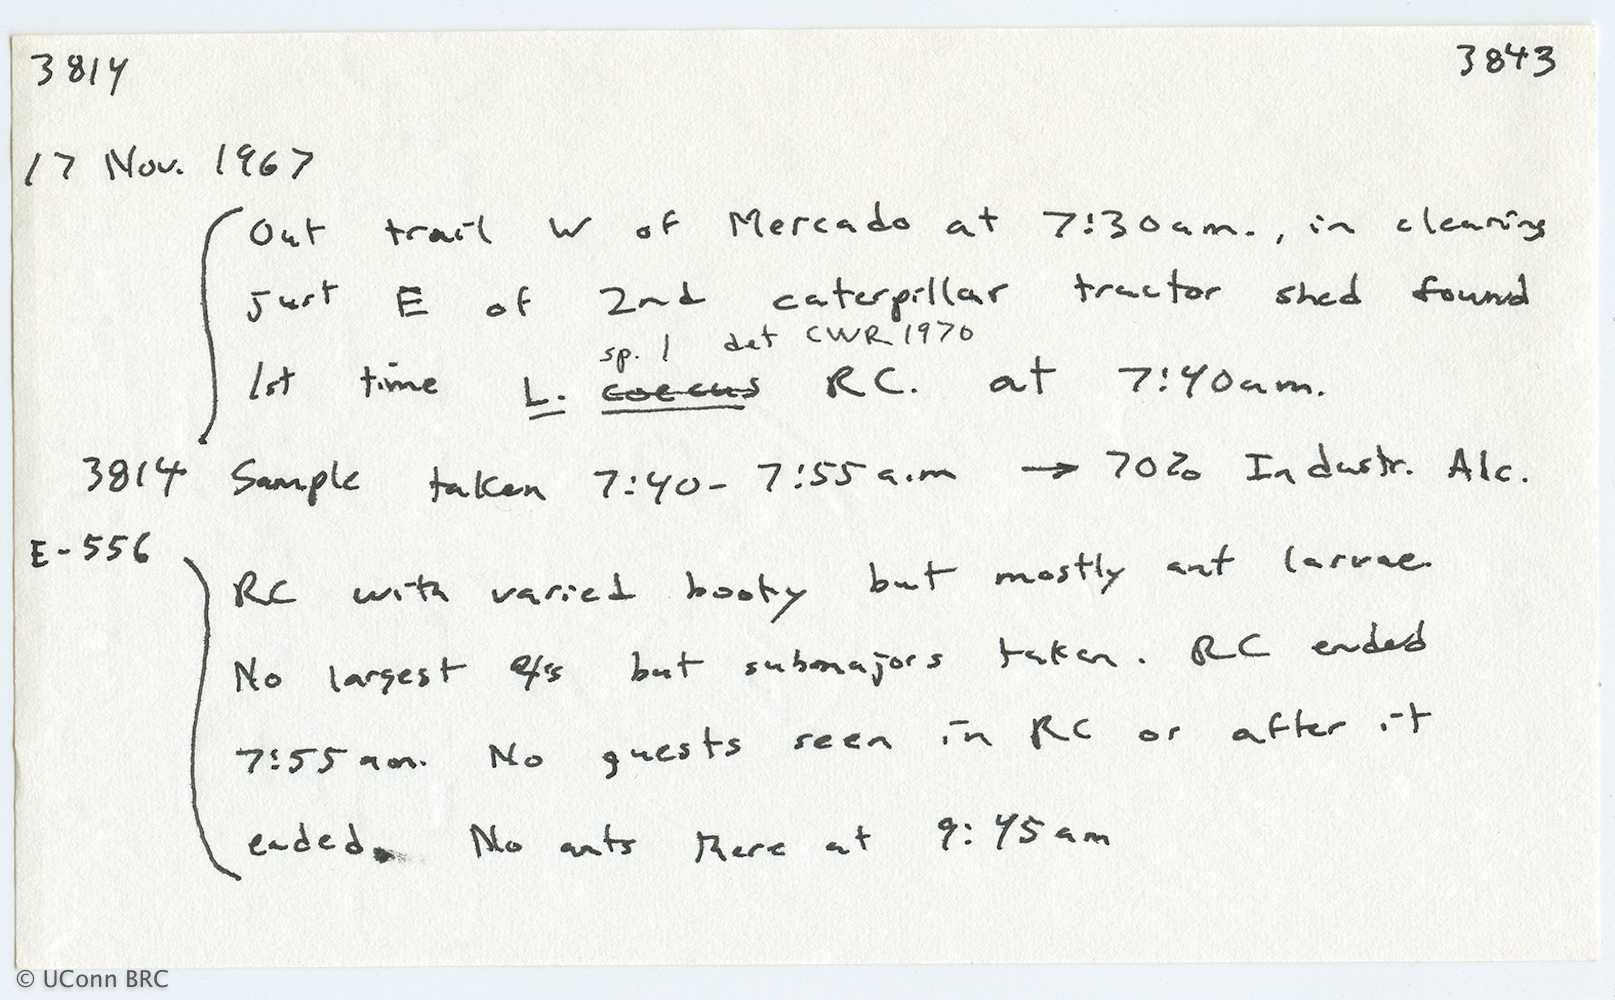 3814 3843
17 Nov. 1967
Out trail W of Mercado at 7:30am., in clearing
just E of 2nd caterpillar tractor shed found
sp. 1 det CWR 1970
1st time L. coecus RC. at 7:40am.
3814 Sample taken 7:40-7:55a.m → 70% Industr. Alc.
E-556
RC with varied booty but mostly ant larvae.
No largest but submajors taken. RC ended
7:55am. No guests seen in RC or after it
ended. No ants there at 9:45am
© UConn BRC